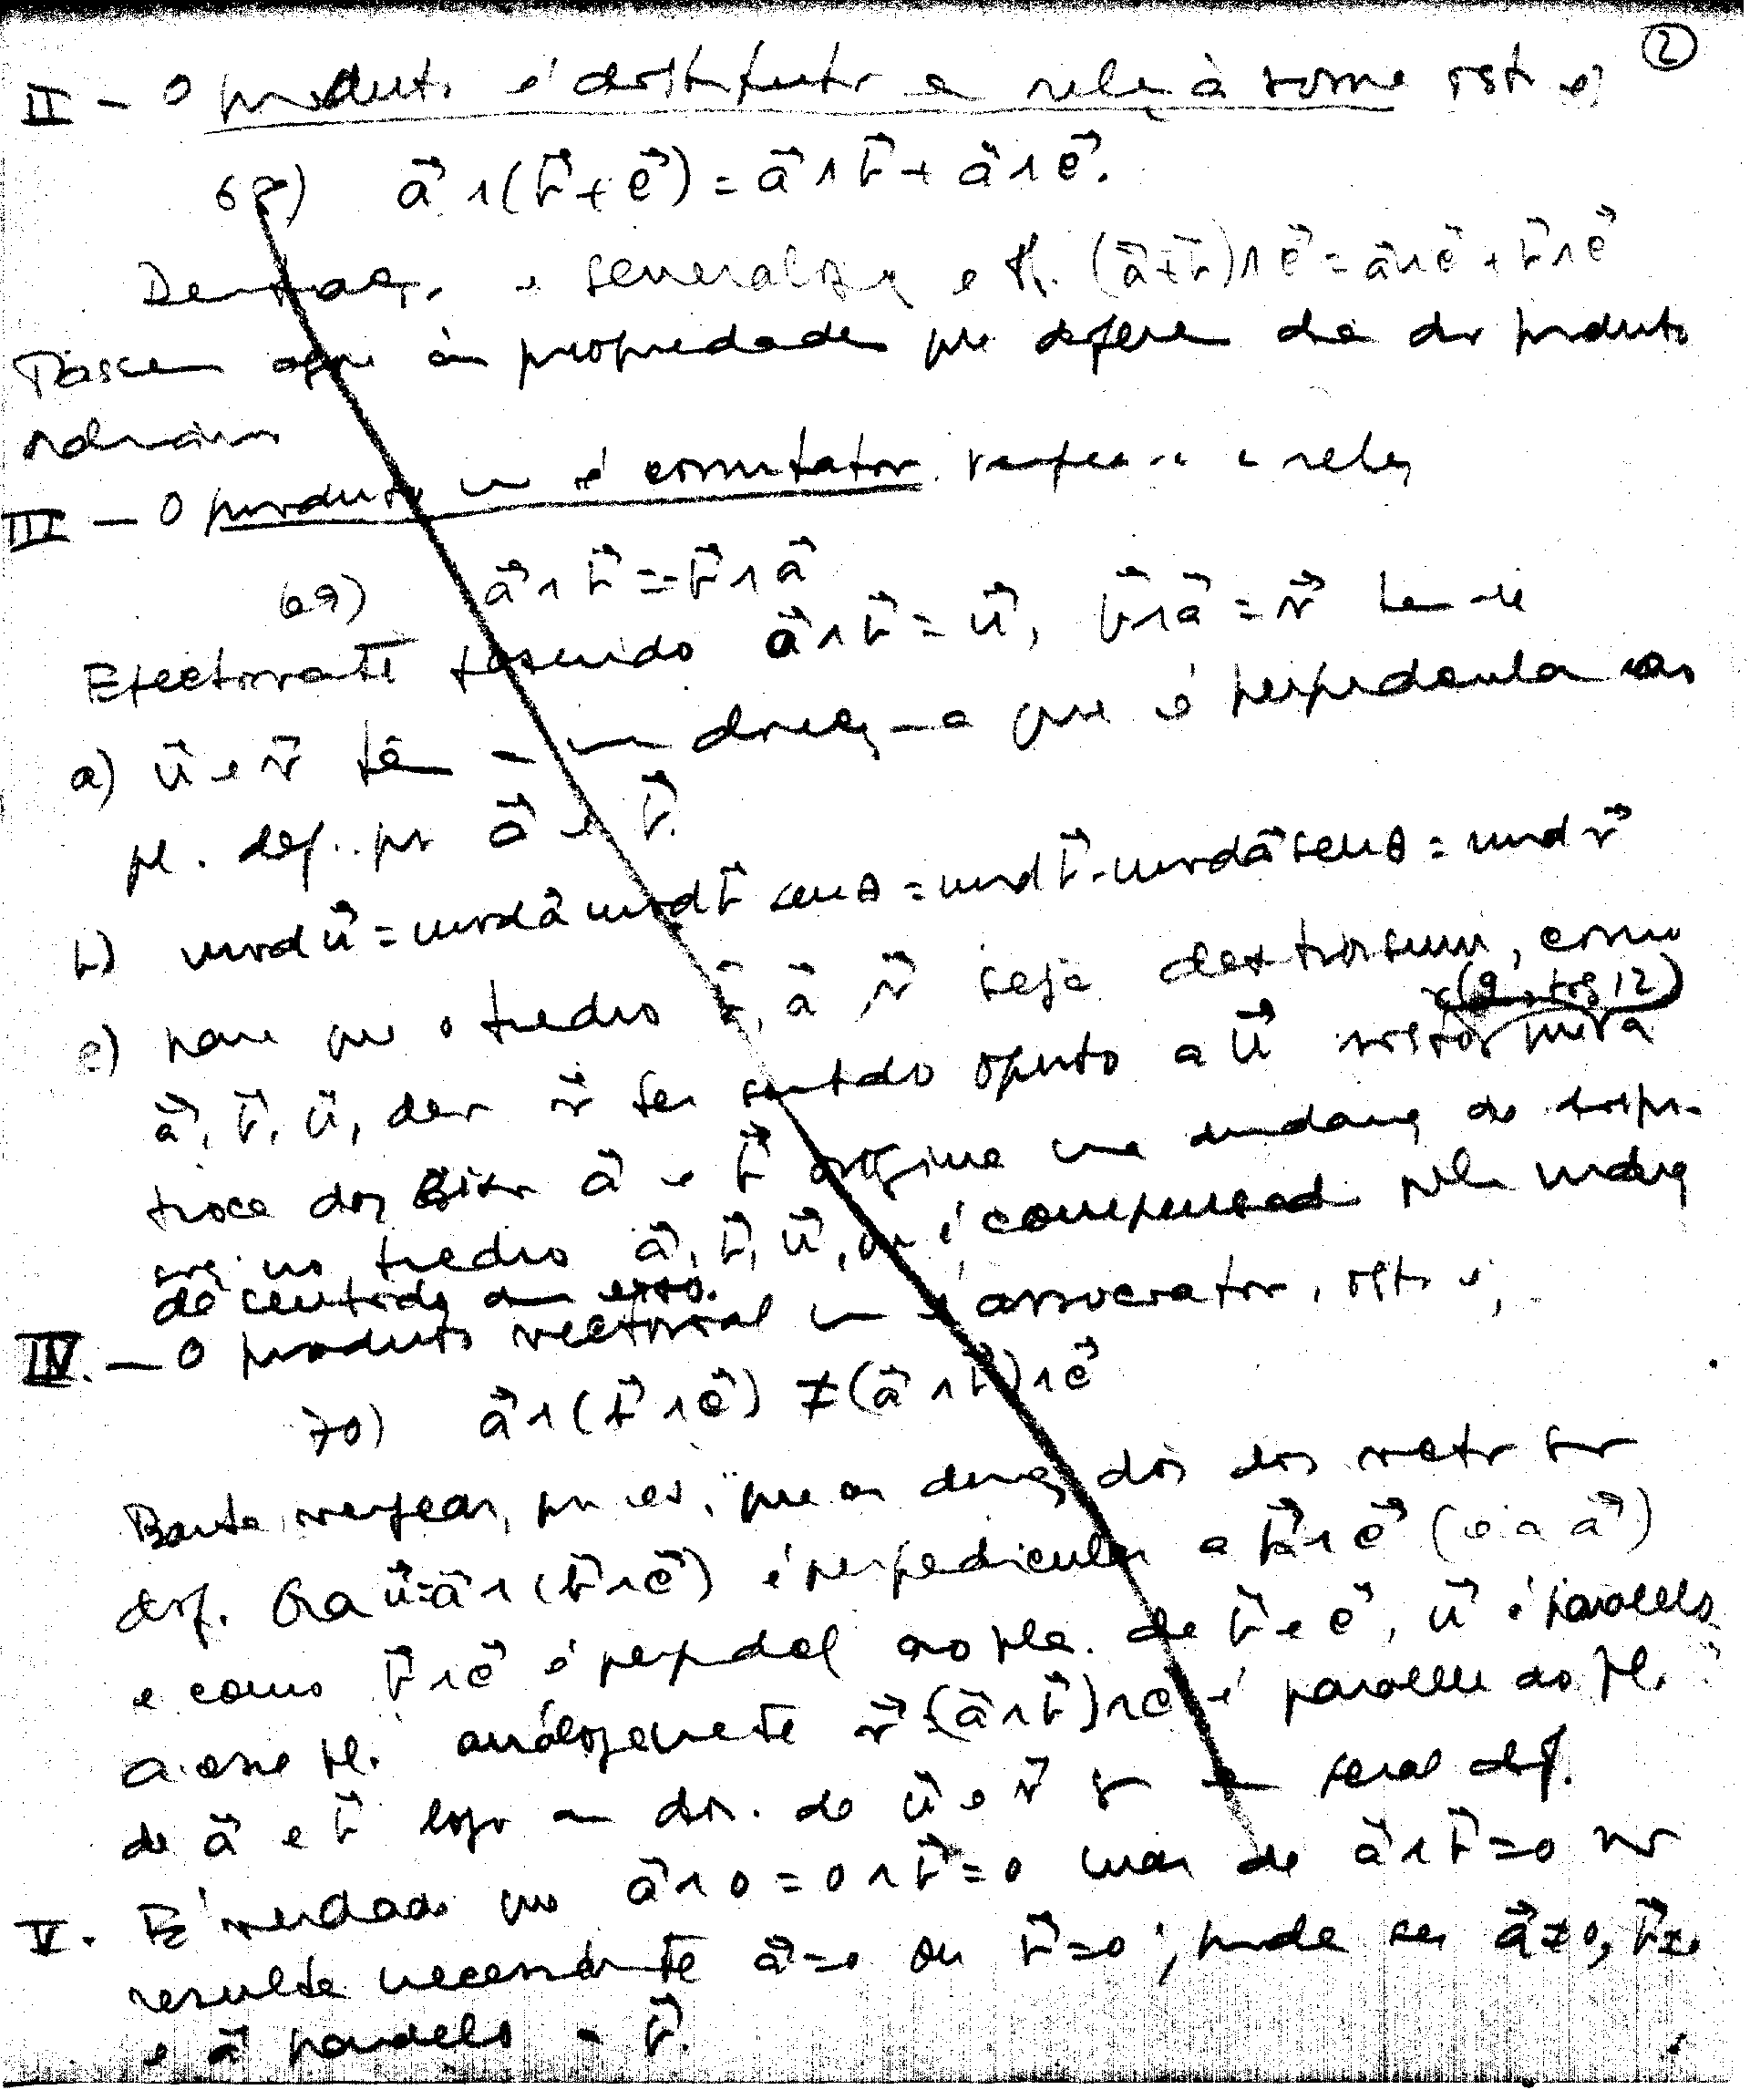 ②
II — O produto é distributivo em relação à soma isto é,
68) a⃗ ∧ (b⃗ + c⃗) = a⃗ ∧ b⃗ + a⃗ ∧ c⃗.
e (a⃗ + b⃗) ∧ c⃗ = a⃗ ∧ c⃗ + b⃗ ∧ c⃗
às propriedades que diferem das do produto
ordinário
III — O produto não é comutativo. a relação
69) a⃗ ∧ b⃗ = - b⃗ ∧ a⃗
Efectivamente fazendo a⃗ ∧ b⃗ = u⃗, b⃗ ∧ a⃗ = v⃗ tem-se
a) u⃗ e v⃗ têm a direcção que é perpendicular ao
pl. def. por a⃗ e b⃗.
b) mod u⃗ = mod a⃗ mod b⃗ sen θ = mod b⃗ . mod a⃗ sen θ = mod v⃗
c) para que o triedro b⃗, a⃗, v⃗ seja dextrorsum, como
a⃗, b⃗, u⃗, deve v⃗ ter sentido oposto a u⃗ pág 12)
troca dos a⃗ e b⃗ origina uma mudança de
no triedro a⃗, b⃗, u⃗, é compensada pela mudança
de sentido
IV. — O produto vectorial não é associativo, isto é,
70) a⃗ ∧ (b⃗ ∧ c⃗) ≠ (a⃗ ∧ b⃗) ∧ c⃗
Basta verificar, que as direcções dos dois vect. são
dif. Ora u⃗ = a⃗ ∧ (b⃗ ∧ c⃗) é perpendicular a b⃗ ∧ c⃗ (e a a⃗)
e como b⃗ ∧ c⃗ é ao pla. de b⃗ e c⃗, u⃗ é paralelo
a esse pl. análogamente v⃗ = (a⃗ ∧ b⃗) ∧ c⃗ é paralelo ao pl.
de a⃗ e b⃗ logo as dir. de u⃗ e v⃗ são em geral dif.
V. É verdade que a⃗ ∧ 0 = 0 ∧ b⃗ = 0 mas de a⃗ ∧ b⃗ = 0 não
resulta a⃗ = 0 ou b⃗ = 0; pode ser a⃗ ≠ 0, b⃗ ≠ 0
e a⃗ paralelo a b⃗.